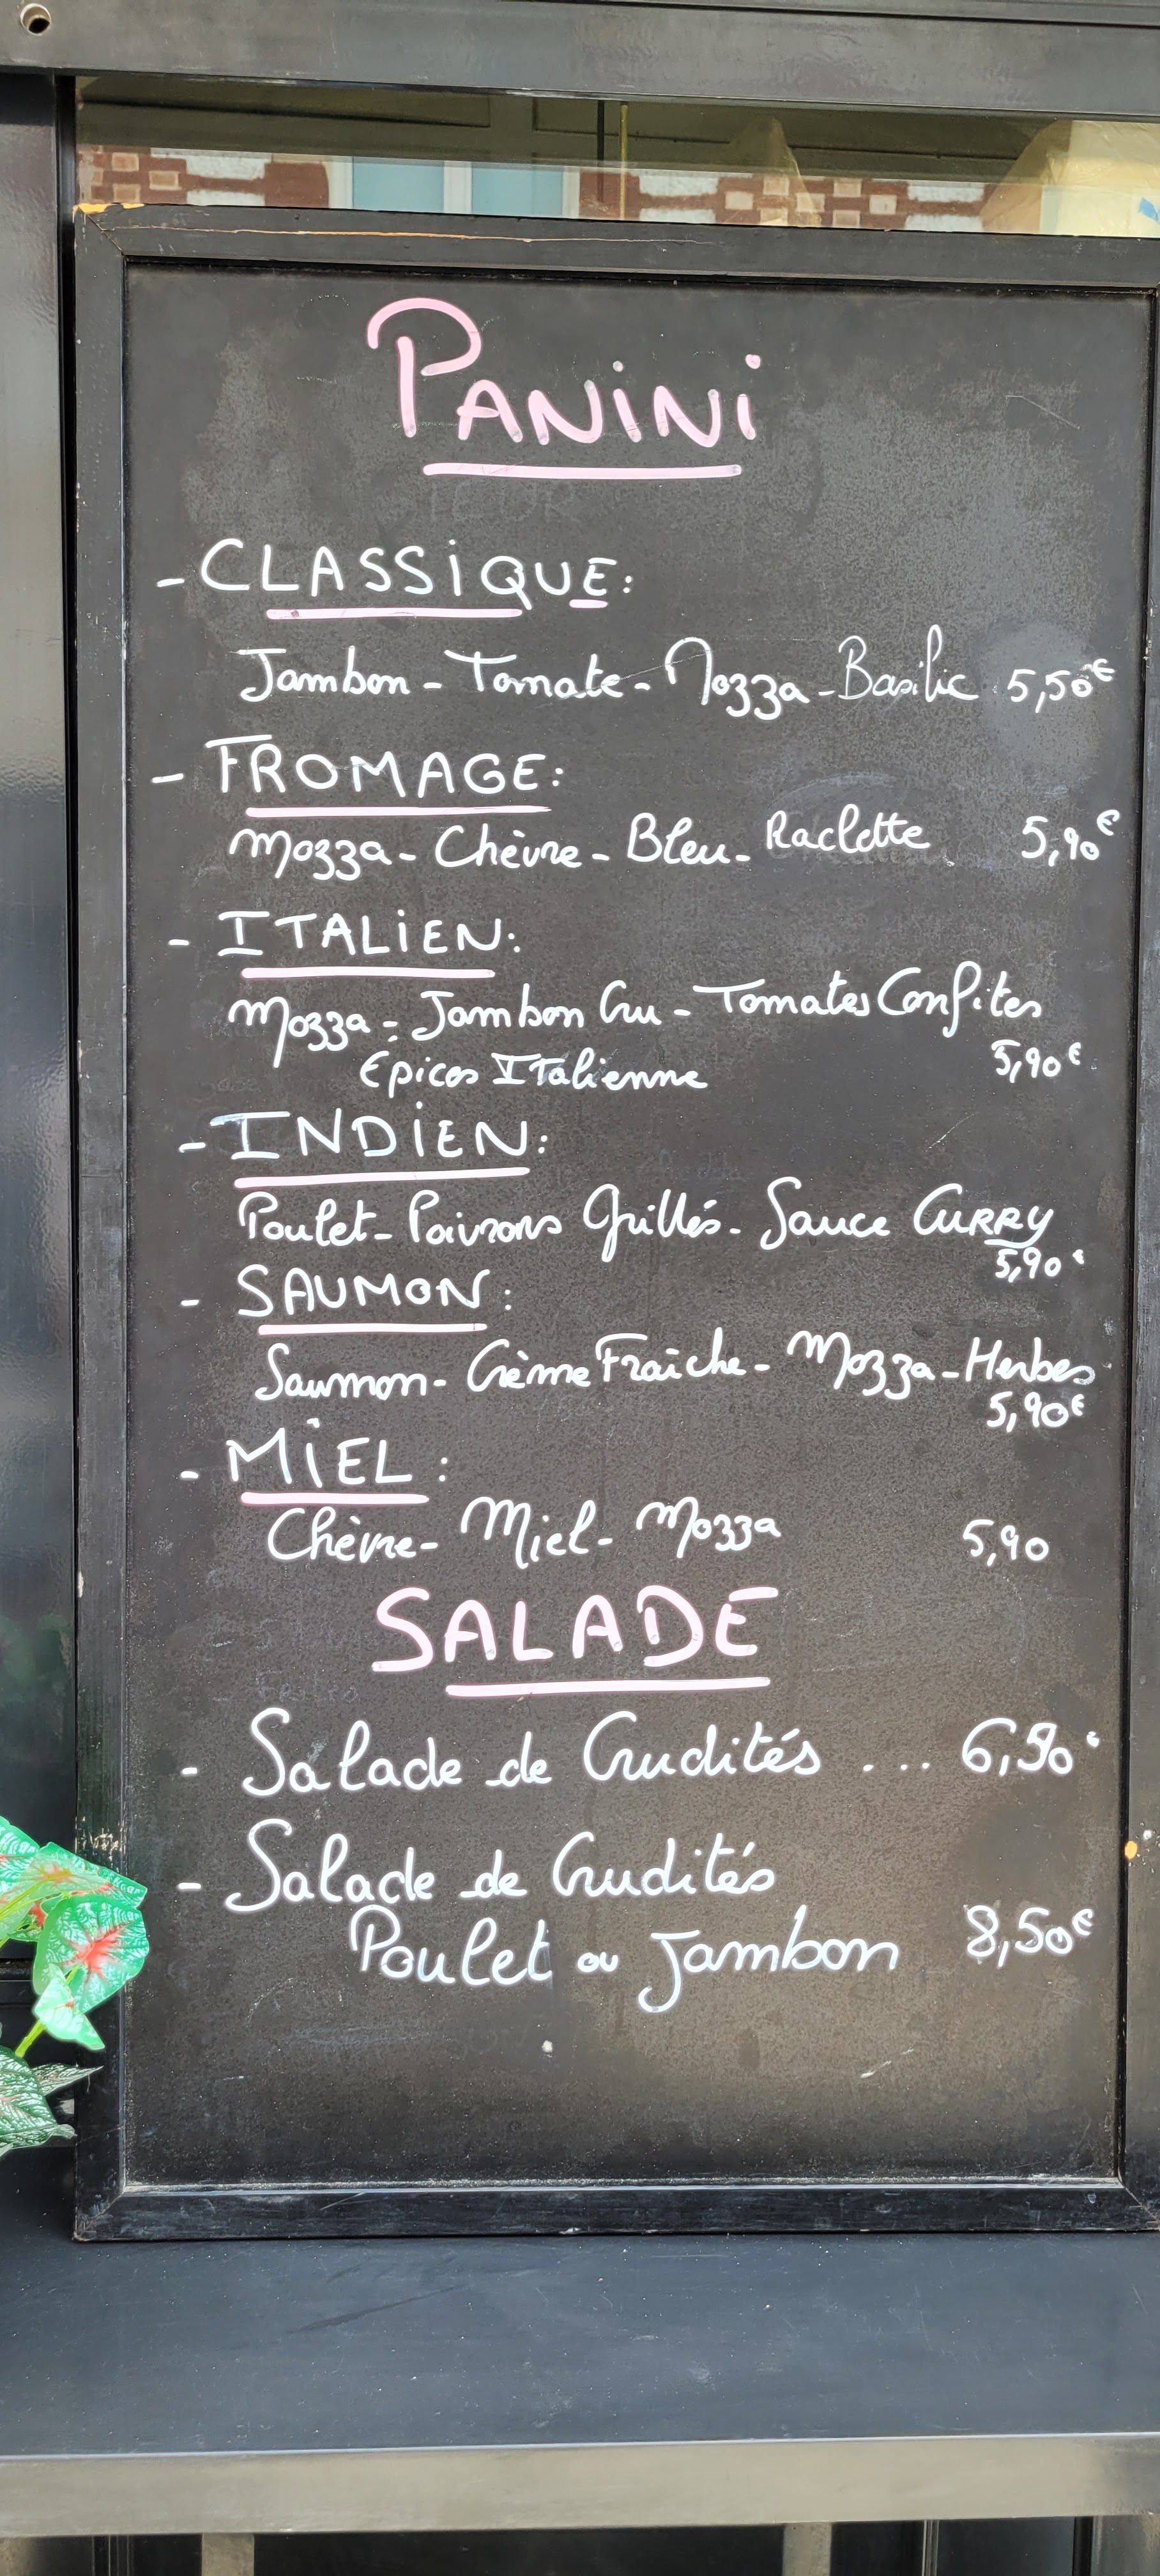 PANiNi
- CLASSiQUE:
Jambon - Tomate - Mozza - Basilic 5,50€
- FROMAGE:
Mozza - Chèvre - Bleu - Raclette 5,90€
- ITALiEN:
Mozza - Jambon Cru - Tomates Confites
Epices Italienne 5,90€
- INDiEN:
Poulet - Poivrons Grillés - Sauce CURRY
5,90€
- SAUMON:
Saumon - Crème Fraiche - Mozza - Herbes
5,90€
- MiEL:
Chèvre - Miel - Mozza 5,90
SALADE
- Salade de Crudités ... 6,50€
- Salade de Crudités
Poulet ou Jambon 8,50€